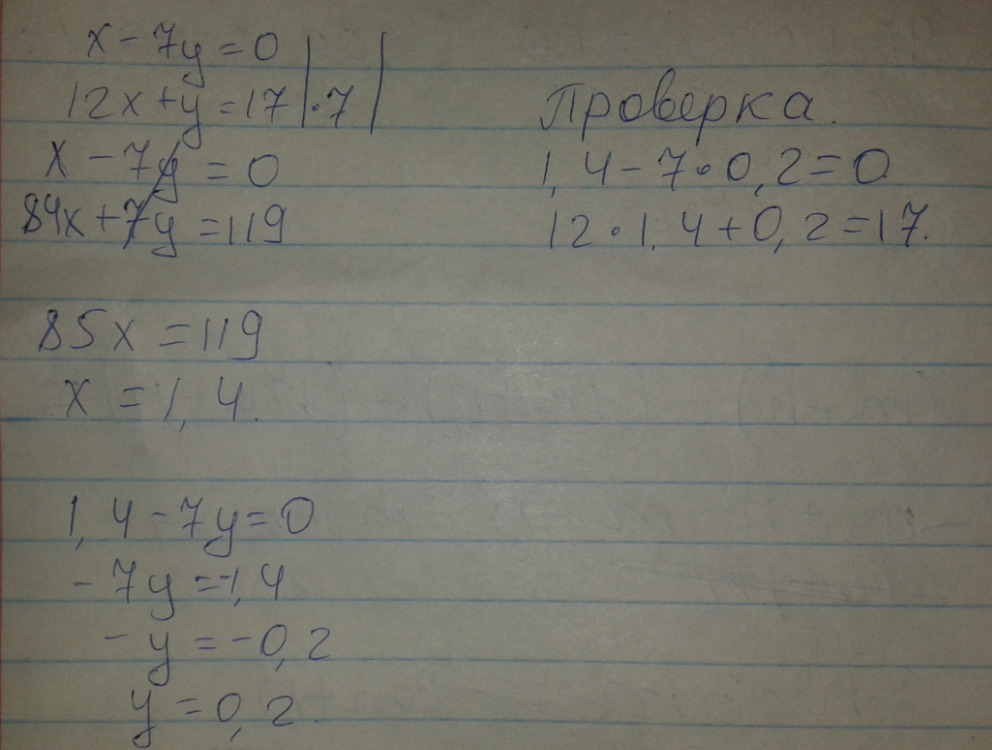 x - 7y = 0
12x + y = 17 | · 7 |
x - 7y = 0
84x + 7y = 119
85x = 119
x = 1,4.
1,4 - 7y = 0
- 7y = -1,4
- y = -0,2
y = 0,2.
Проверка.
1,4 - 7 · 0,2 = 0
12 · 1,4 + 0,2 = 17.